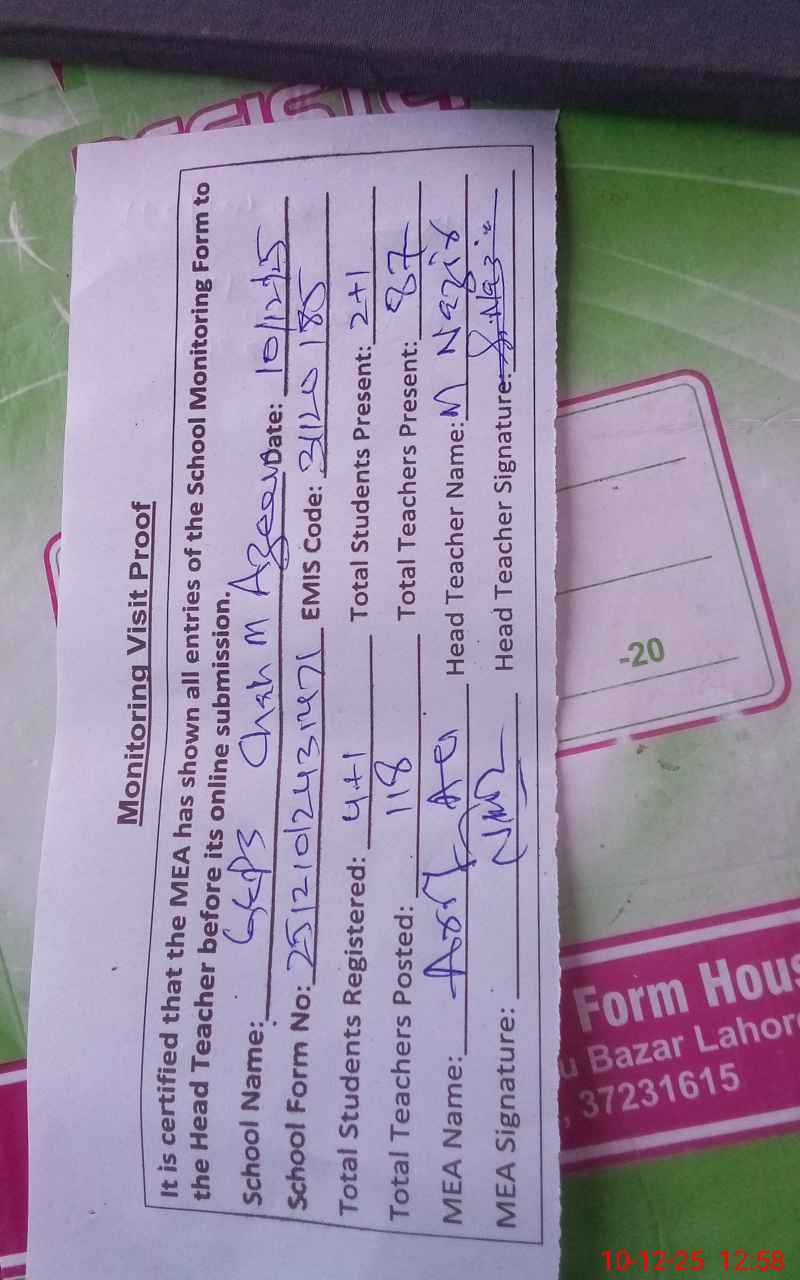 REGISTER
Monitoring Visit Proof
It is certified that the MEA has shown all entries of the School Monitoring Form to
the Head Teacher before its online submission.
School Name: GGPS Chah M Azeem Date: 10/12/25
School Form No: 251210243471 EMIS Code: 31120185
Total Students Registered: 4+1 Total Students Present: 2+1
Total Teachers Posted: 118 Total Teachers Present: 87
MEA Name: Head Teacher Name: M Nazir
MEA Signature: Head Teacher Signature: Nazir
-20
Form Hous
u Bazar Lahore
, 37231615
10-12-25 12:58